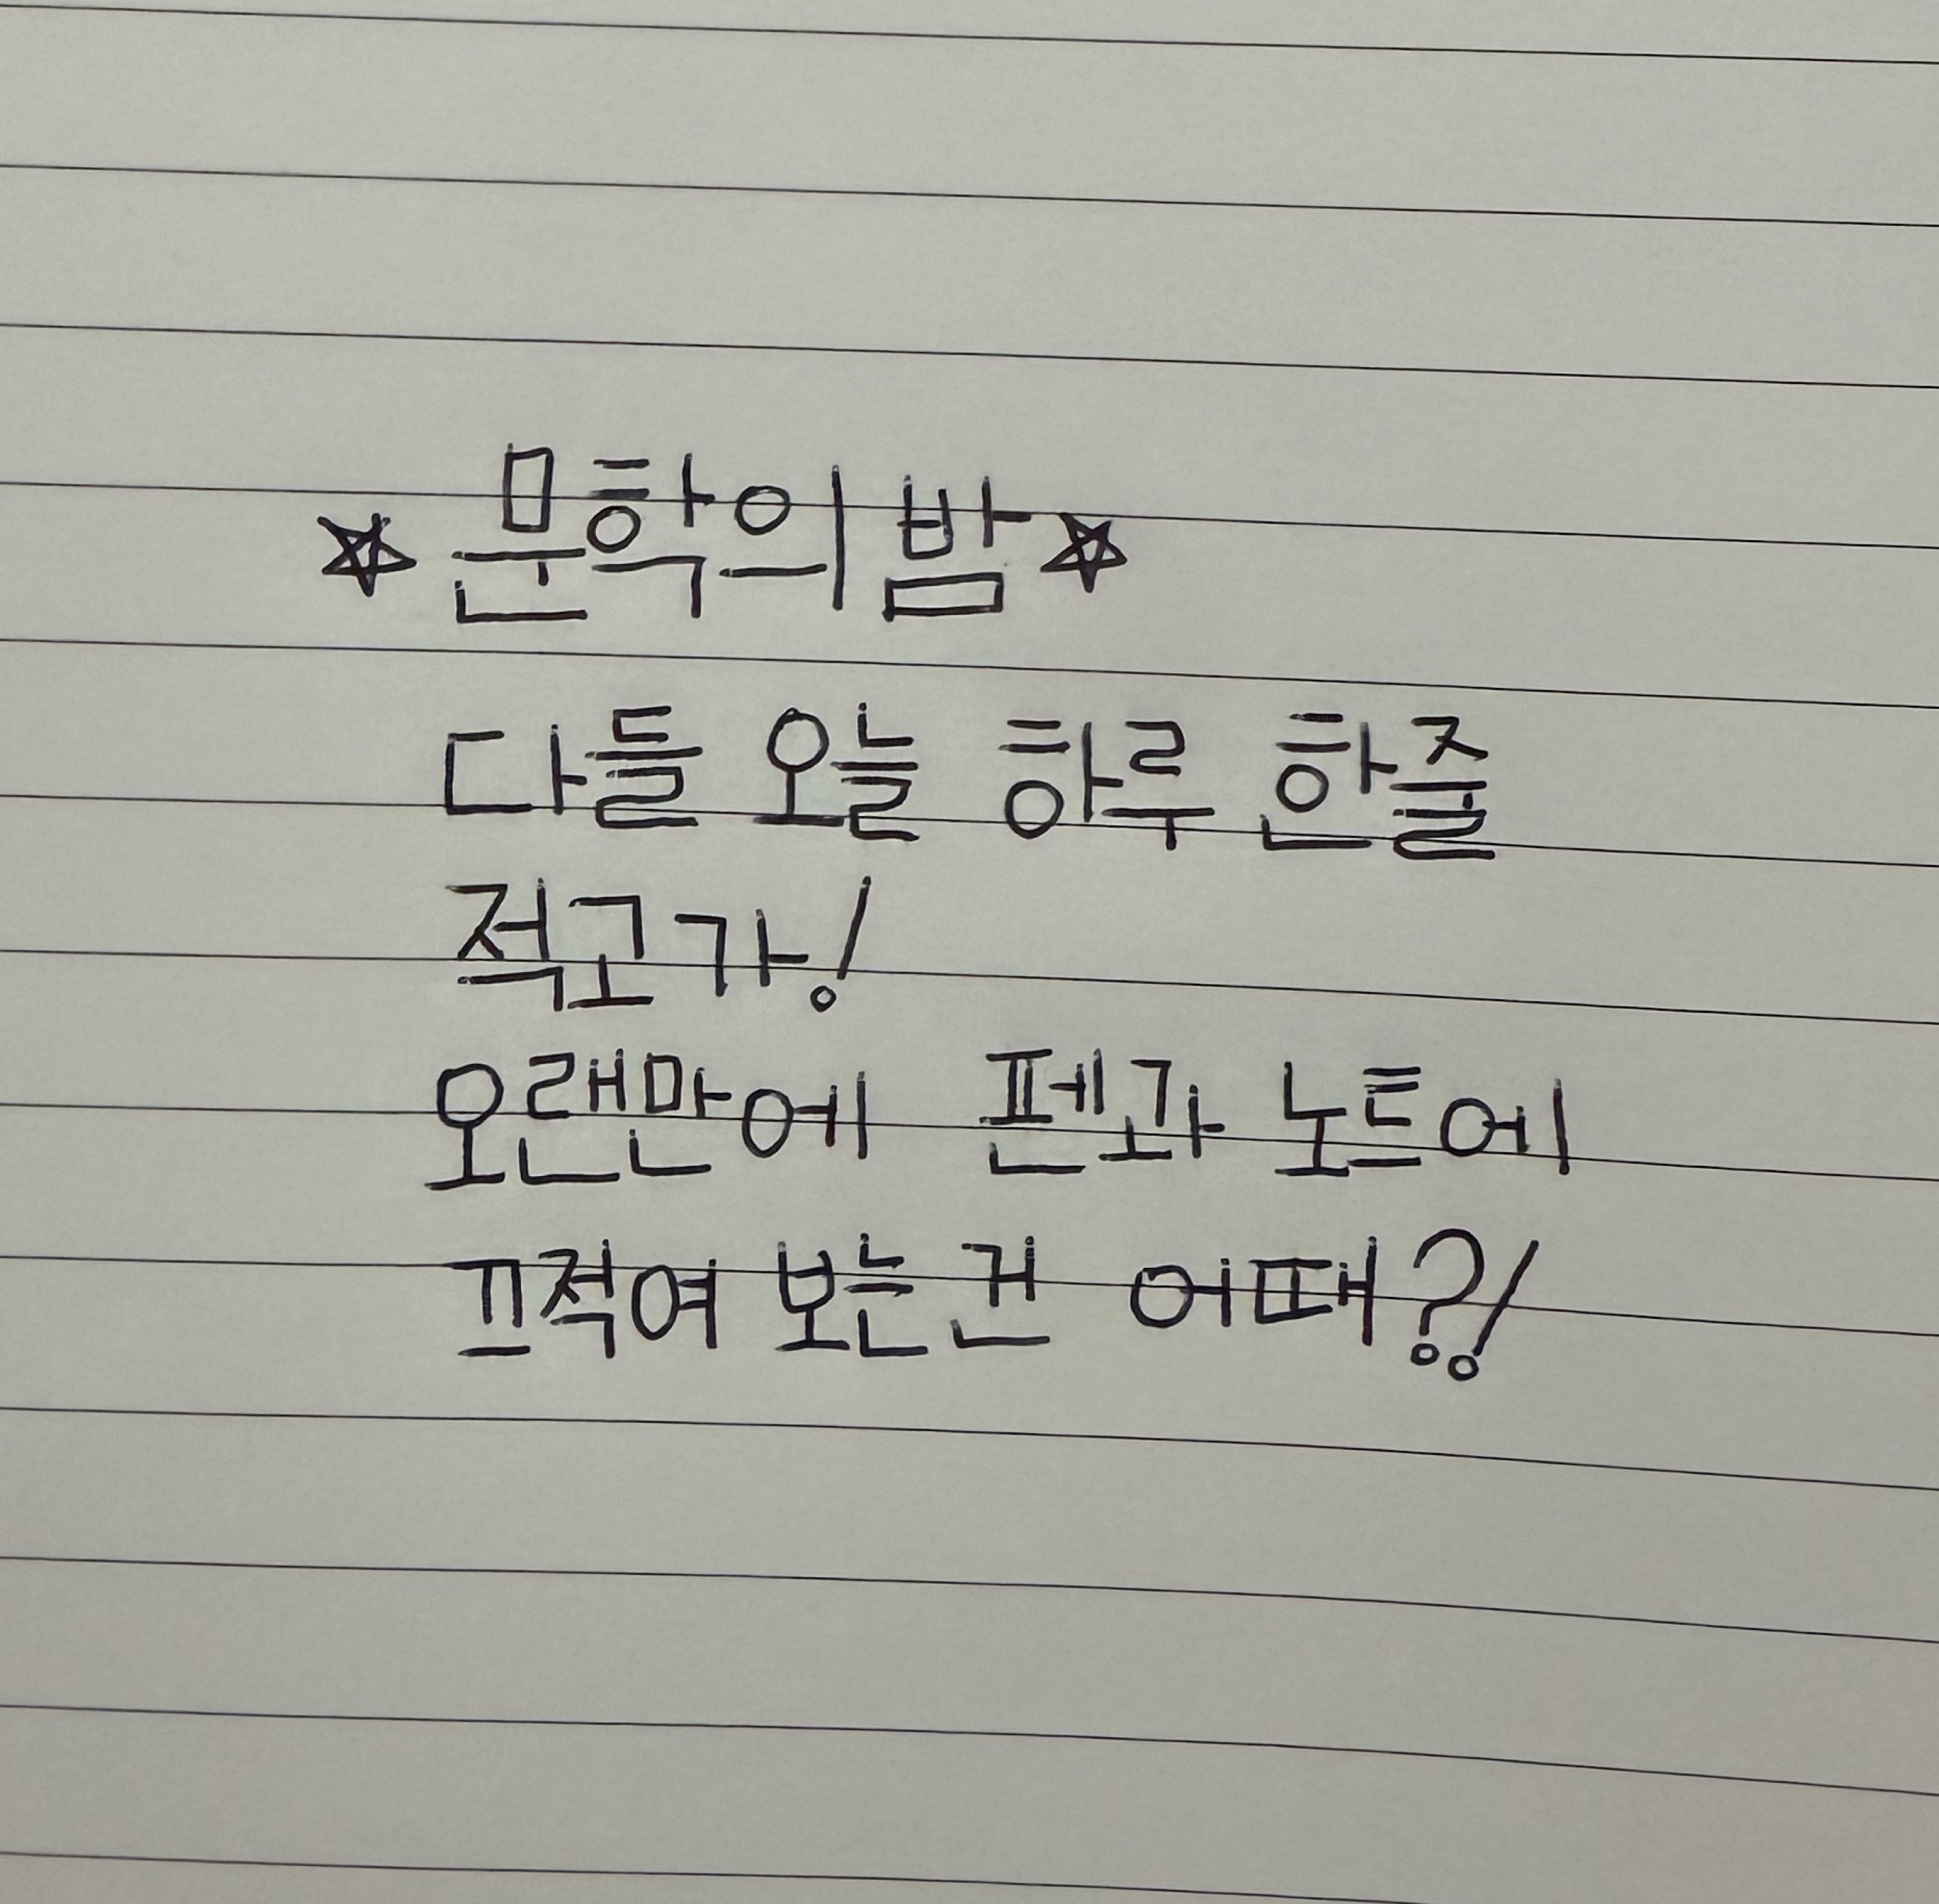 ☆ 문학의 밤 ☆
다들 오늘 하루 한줄
적고가!
오랜만에 펜과 노트에
끄적여 보는 건 어때?!